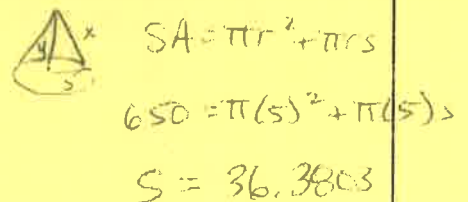 y x
5
SA = πr² + πrs
650 = π(5)² + π(5)s
S = 36.3803